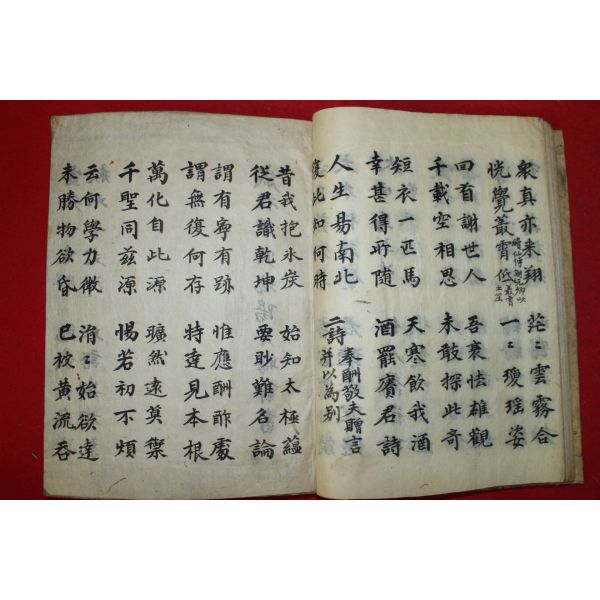 衆真亦来翔
恍覺叢霄低
茫〻雲霧合
一〻瓊瑤姿
回首謝世人
千載空相思
吾衰怯雄觀
未敢探此奇
短衣一匹馬
幸甚得所随
天寒飲我酒
酒罷賡君詩
人生易南北
復此知何時
二詩 奉酬敬夫贈言
并以為别
昔我抱氷炭
從君識乾坤
始知太極蘊
要眇難名論
謂有寧有跡
謂無復何存
惟應酬酢處
特達見本根
萬化自此源
千聖同兹源
曠然遠莫禦
惕若初不煩
云何學力微
未勝物欲昏
涓〻始欲達
已被黄流吞